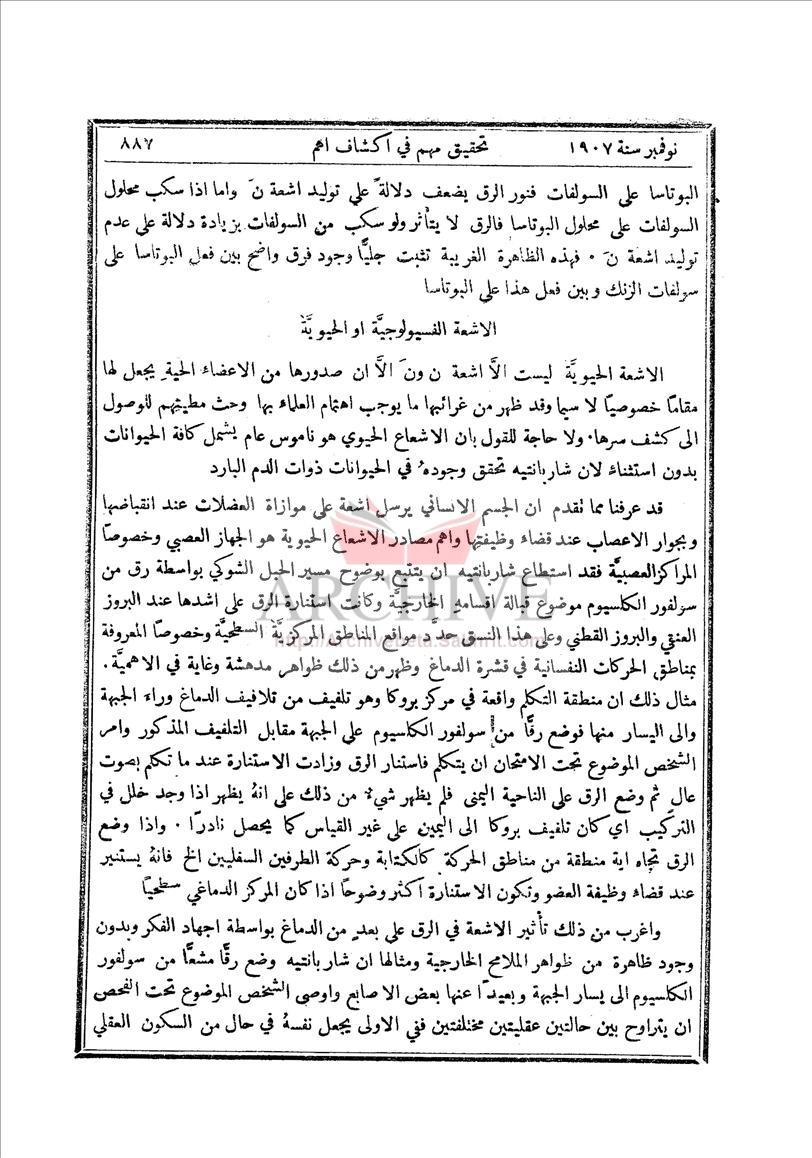 نوفمبر سنة ١٩٠٧ تحقيق مهم في اكشاف اهم ٨٨٧
البوتاسا على السولفات فنور الرق يضعف دلالةً على توليد اشعة نَ واما اذا سكب محلول
السولفات على محلول البوتاسا فالرق لا يتأثر ولو سكب من السولفات بزيادة دلالة على عدم
توليد اشعة نَ ٠ فهذه الظاهرة الغريبة تثبت جليًّا وجود فرق واضح بين فعل البوتاسا على
سولفات الزنك وبين فعل هذا على البوتاسا
الاشعة الفسيولوجيَّة او الحيويَّة
الاشعة الحيويَّة ليست الَّا اشعة ن ونَ الَّا ان صدورها من الاعضاء الحية يجعل لها
مقامًا خصوصيًّا لا سيما وقد ظهر من غرائبها ما يوجب اهتمام العلماء بها وحث مطيتهم للوصول
الى كشف سرها٠ ولا حاجة للقول بان الاشعاع الحيوي هو ناموس عام يشمل كافة الحيوانات
بدون استثناء لان شاربانتيه تحقق وجودهُ في الحيوانات ذوات الدم البارد
قد عرفنا مما نقدم ان الجسم الانساني يرسل اشعة على موازاة العضلات عند انقباضها
وبجوار الاعصاب عند قضاء وظيفتها واهم مصادر الاشعاع الحيوية هو الجهاز العصبي وخصوصًا
المراكز العصبيَّة فقد استطاع شاربانتيه ان يتتبع بوضوح مسير الحبل الشوكي بواسطة رق من
سولفور الكلسيوم موضوع قبالة اقسامهِ الخارجيَّة وكانت استنارة الرق على اشدها عند البروز
العنقي والبروز القطني وعلى هذا النسق حدَّد مواقع المناطق المركزيَّة السطحيَّة وخصوصًا المعروفة
بمناطق الحركات النفسانية في قشرة الدماغ وظهر من ذلك ظواهر مدهشة وغاية في الاهميَّة ٠
مثال ذلك ان منطقة التكلم واقعة في مركز بروكا وهو تلفيف من تلافيف الدماغ وراء الجبهة
والى اليسار منها فوضع رقًّا من سولفور الكلسيوم على الجبهة مقابل التلفيف المذكور وامر
الشخص الموضوع تحت الامتحان ان يتكلم فاستنار الرق وزادت الاستنارة عند ما تكلم بصوت
عالٍ ثم وضع الرق على الناحية اليمنى فلم يظهر شيءٌ من ذلك على انهُ يظهر اذا وجد خلل في
التركيب اي كان تلفيف بروكا الى اليمين على غير القياس كما يحصل نادرًا ٠ واذا وضع
الرق تجاه اية منطقة من مناطق الحركة كالكتابة وحركة الطرفين السفليين الخ فانهُ يستنير
عند قضاء وظيفة العضو وتكون الاستنارة اكثر وضوحًا اذا كان المركز الدماغي سطحيًّا
واغرب من ذلك تأثير الاشعة في الرق على بعدٍ من الدماغ بواسطة اجهاد الفكر وبدون
وجود ظاهرة من ظواهر الملامح الخارجية ومثالها ان شاربانتيه وضع رقًّا مشعًّا من سولفور
الكلسيوم الى يسار الجبهة وبعيدًا عنها بعض الاصابع واوصى الشخص الموضوع تحت الفحص
ان يتراوح بين حالتين عقليتين مختلفتين ففي الاولى يجعل نفسهُ في حال من السكون العقلي
ARCHIVE